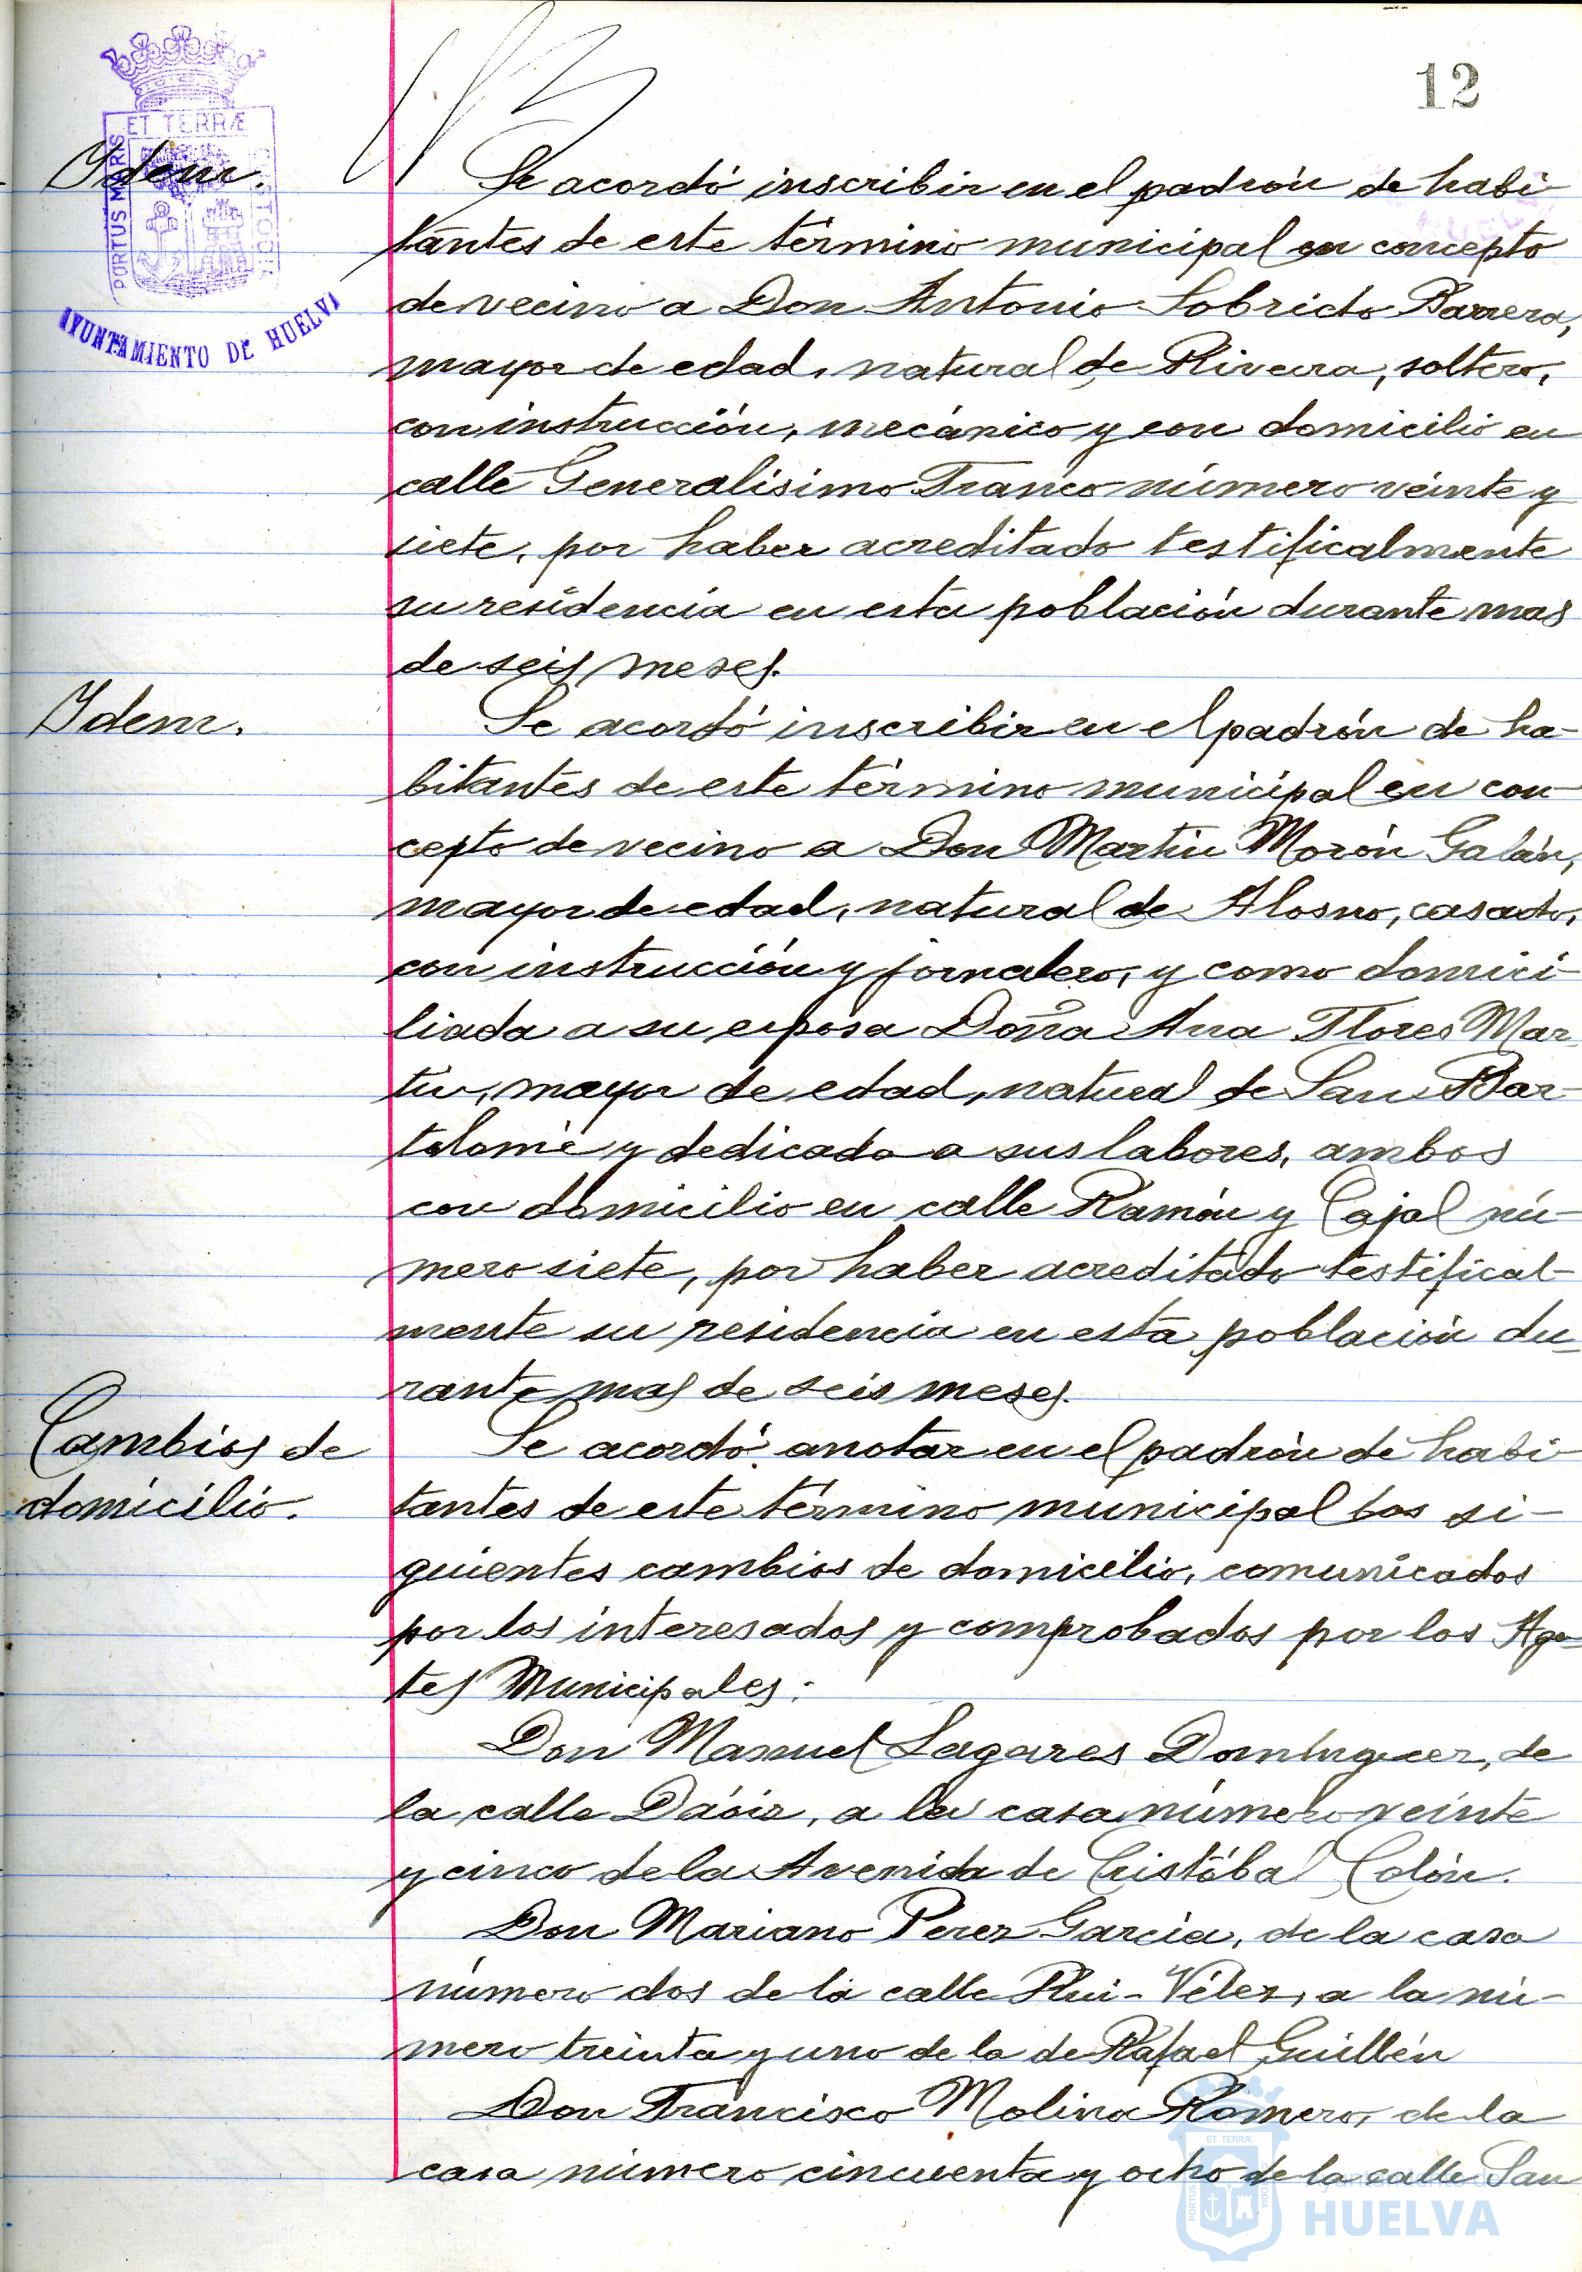 12
ET TERRÆ
PORTUS MARIS
AYUNTAMIENTO DE HUELVA
Idem.
Se acordó inscribir en el padrón de habi-
tantes de este término municipal en concepto
de vecino a Don Antonio Sobrido Barrera,
mayor de edad, natural de Riveira, soltero,
con instrucción, mecánico y con domicilio en
calle Generalísimo Franco número veinte y
siete, por haber acreditado testificalmente
su residencia en esta población durante mas
de seis meses.
Idem.
Se acordó inscribir en el padrón de ha-
bitantes de este término municipal en con-
cepto de vecino a Don Martín Morón Galán,
mayor de edad, natural de Alosno, casado,
con instrucción y jornalero, y como domici-
liada a su esposa Doña Ana Flores Mar-
tín, mayor de edad, natural de San Bar-
tolomé y dedicada a sus labores, ambos
con domicilio en calle Ramón y Cajal nú-
mero siete, por haber acreditado testifical-
mente su residencia en esta población du-
rante mas de seis meses.
Cambios de
domicilio.
Se acordó anotar en el padrón de habi-
tantes de este término municipal los si-
guientes cambios de domicilio, comunicados
por los interesados y comprobados por los Agen-
tes Municipales:
Don Manuel Lagares Domínguez, de
la calle Dáoiz, a la casa número veinte
y cinco de la Avenida de Cristóbal Colón.
Don Mariano Perez García, de la casa
número dos de la calle Rui-Vélez, a la nú-
mero treinta y uno de la de Rafael Guillén
Don Francisco Molina Romero, de la
casa número cincuenta y ocho de la calle San
Ayuntamiento de
HUELVA